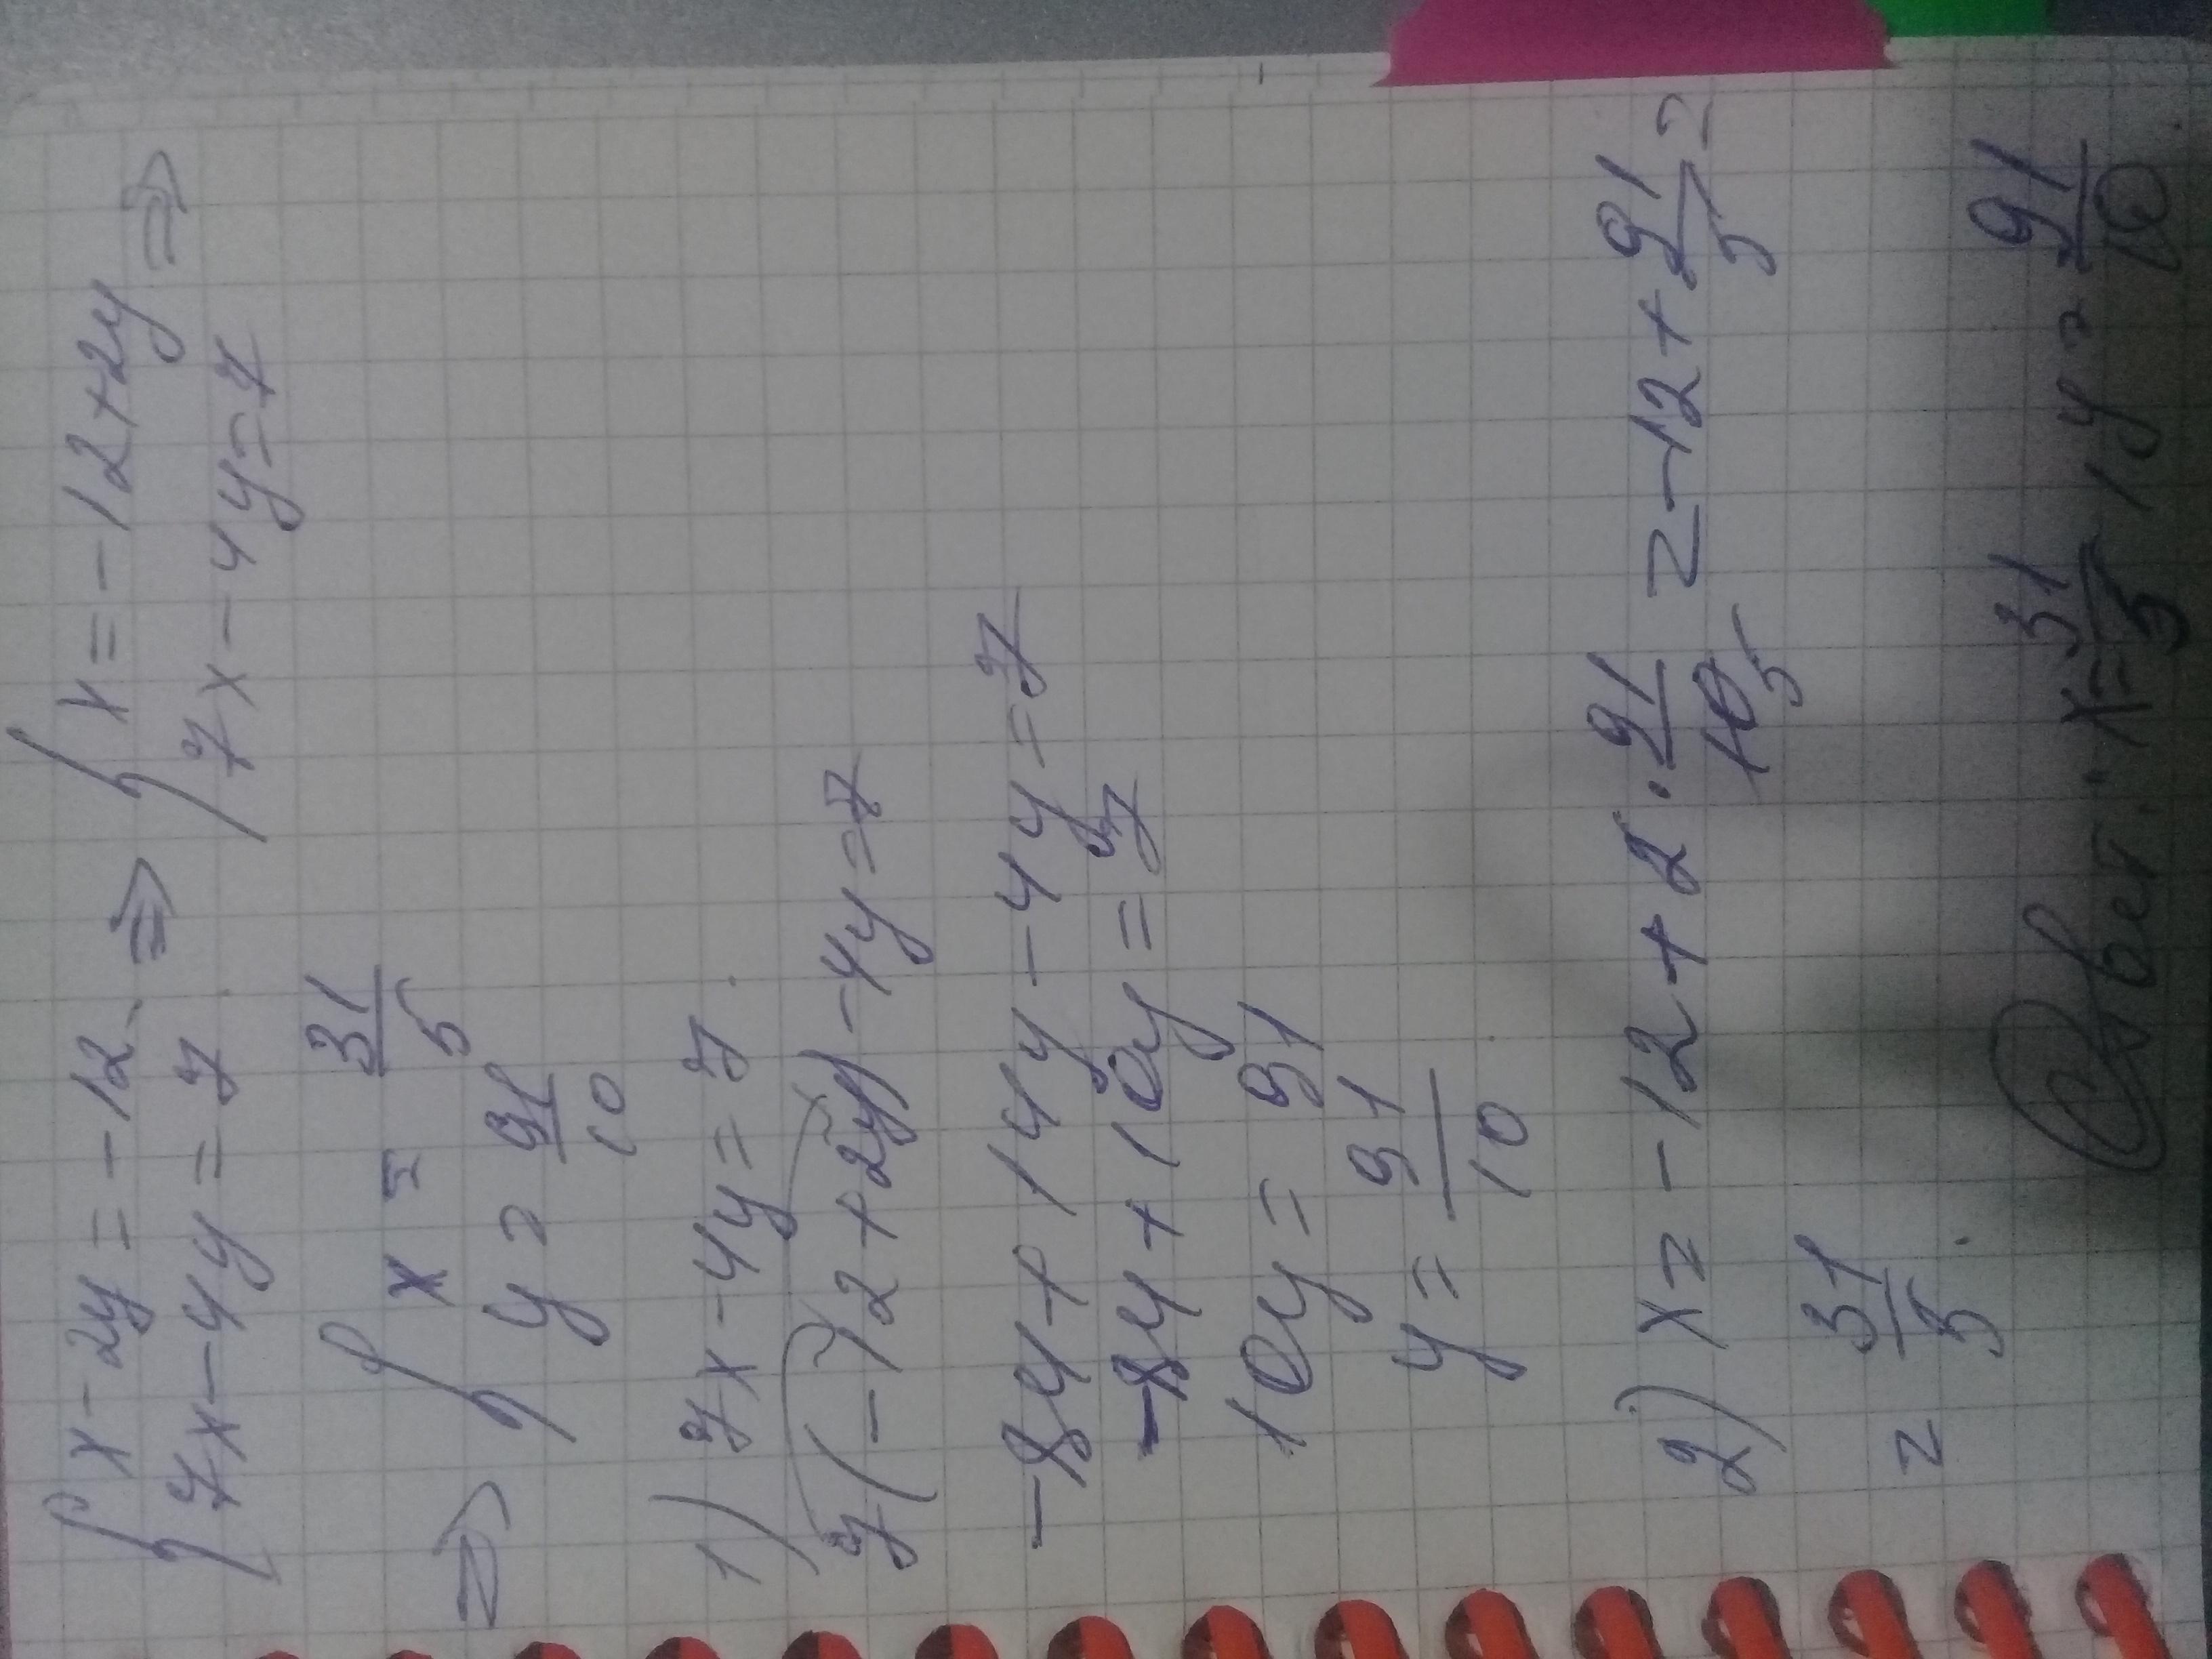 { x - 2y = -12 ⇒ { x = -12 + 2y ⇒
7x - 4y = 7 7x - 4y = 7
⇒ { x = 31/5
y = 91/10
1) 7x - 4y = 7
7(-12 + 2y) - 4y = 7
-84 + 14y - 4y = 7
-84 + 10y = 7
10y = 91
y = 91/10
2) x = -12 + 2 · 91/10 5 = -12 + 91/5 =
= 31/5
Ответ: x = 31/5, y = 91/10